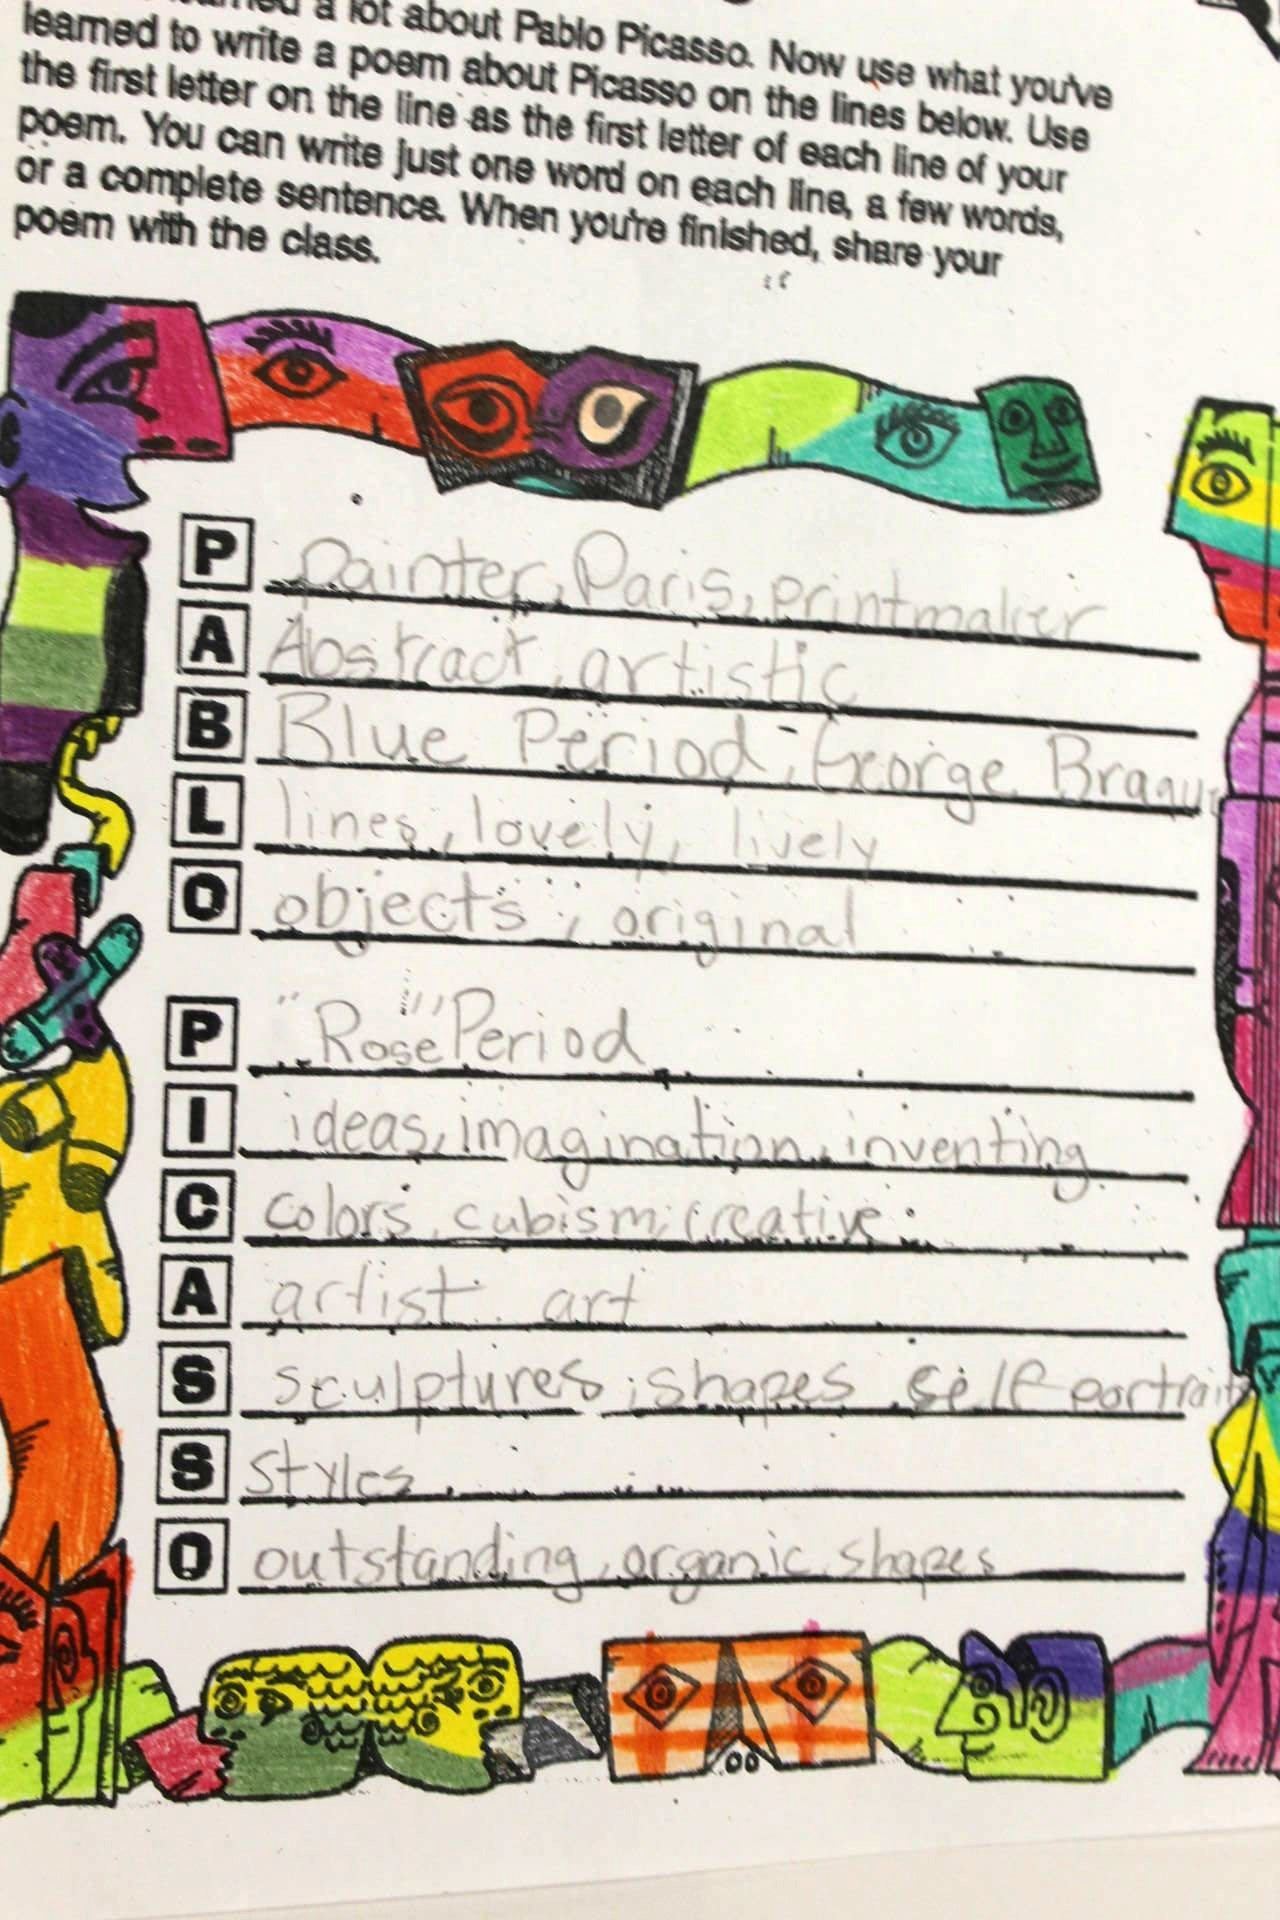 a lot about Pablo Picasso. Now use what you've
learned to write a poem about Picasso on the lines below. Use
the first letter on the line as the first letter of each line of your
poem. You can write just one word on each line, a few words,
or a complete sentence. When you're finished, share your
poem with the class.
P painter, Paris, printmaker
A Abstract, artistic
B Blue Period, George Braque
L lines, lovely, lively
O objects, original
P "Rose" Period
I ideas, imagination, inventing
C colors, cubism, creative
A artist art
S sculptures, shapes self portraits
S styles
O outstanding, organic shapes